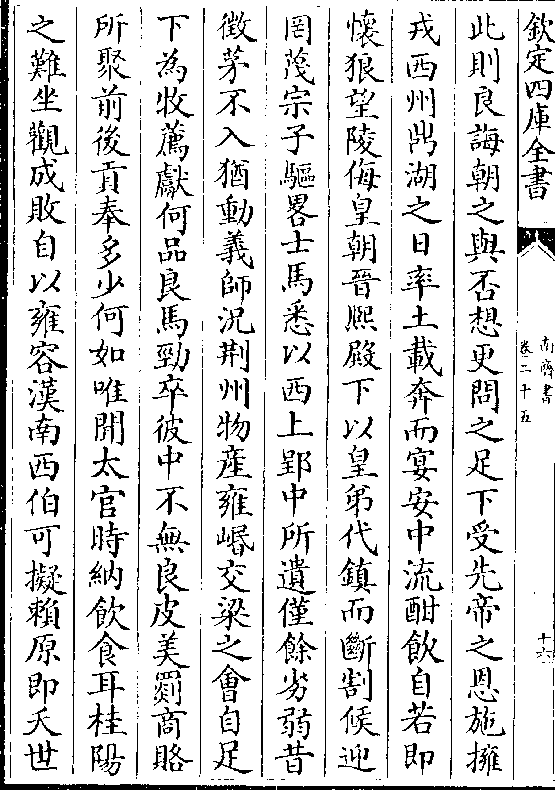 欽定四庫全書
南齊書
卷二十五
十六
此則良誨朝之與否想更問之足下受先帝之恩施擁
戎西州鼎湖之日率土載奔而宴安中流酣飲自若即
懷狼望陵侮皇朝晉熈殿下以皇弟代鎮而斷割候迎
罔蔑宗子驅畧士馬悉以西上郢中所遺僅餘劣弱昔
徵茅不入猶動義師況荆州物産雍㟭交梁之會自足
下為牧薦獻何品良馬勁卒彼中不無良皮美罽商賂
所聚前後貢奉多少何如唯聞太官時納飲食耳桂陽
之難坐觀成敗自以雍容漢南西伯可擬賴原即夭世